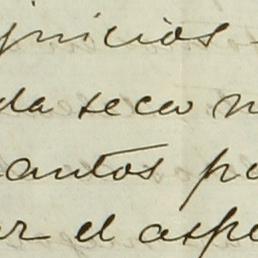 juicios
da seca n
antos po
ar el aspe